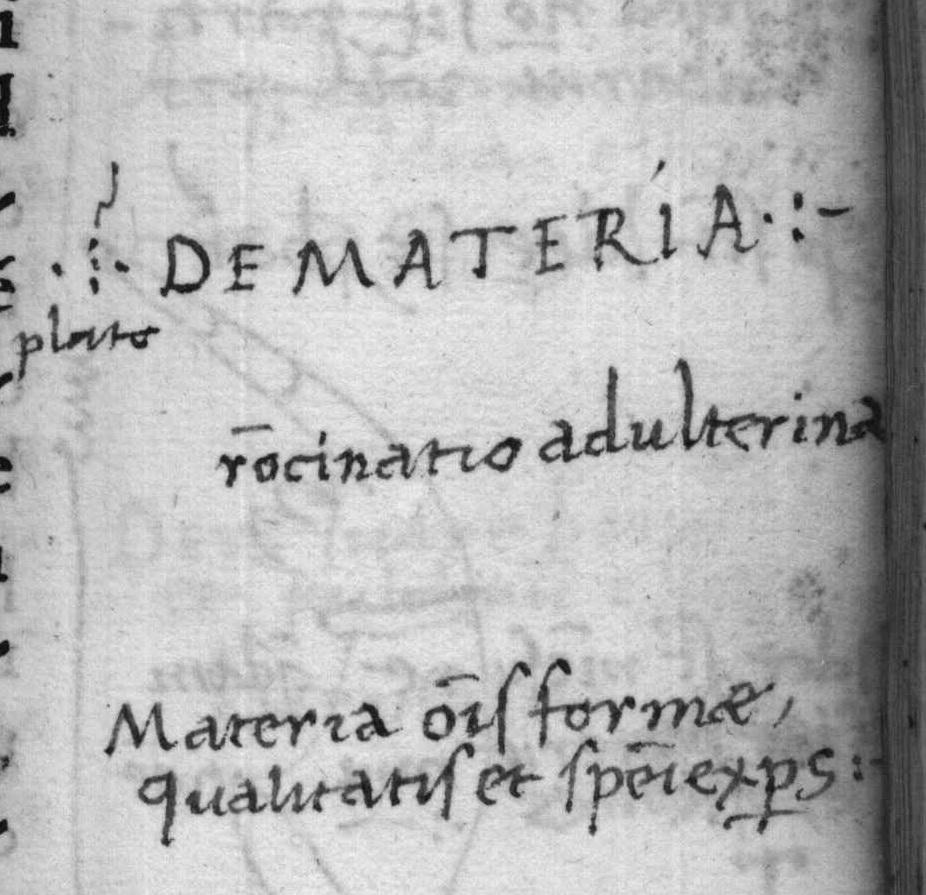 .:. DE MATERÍA .:-
plato
rōcinatio adulterina
Materia ōiſ formæ,
qualitatiſ et ſpēi exp̱s :-